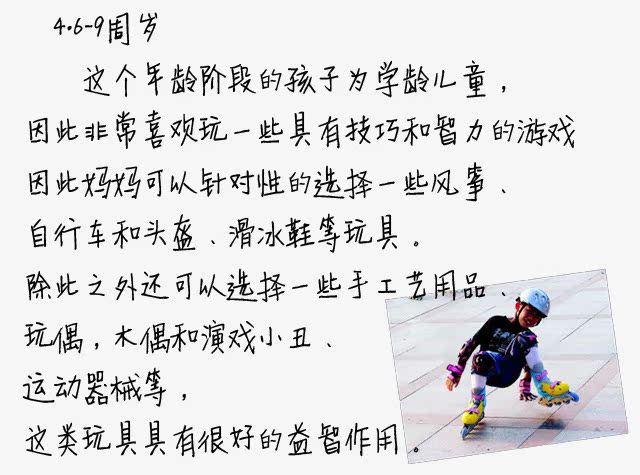 4.6-9周岁
这个年龄阶段的孩子为学龄儿童，
因此非常喜欢玩一些具有技巧和智力的游戏
因此妈妈可以针对性的选择一些风筝、
自行车和头盔、滑冰鞋等玩具。
除此之外还可以选择一些手工艺用品、
玩偶，木偶和演戏小丑、
运动器械等，
这类玩具具有很好的益智作用。